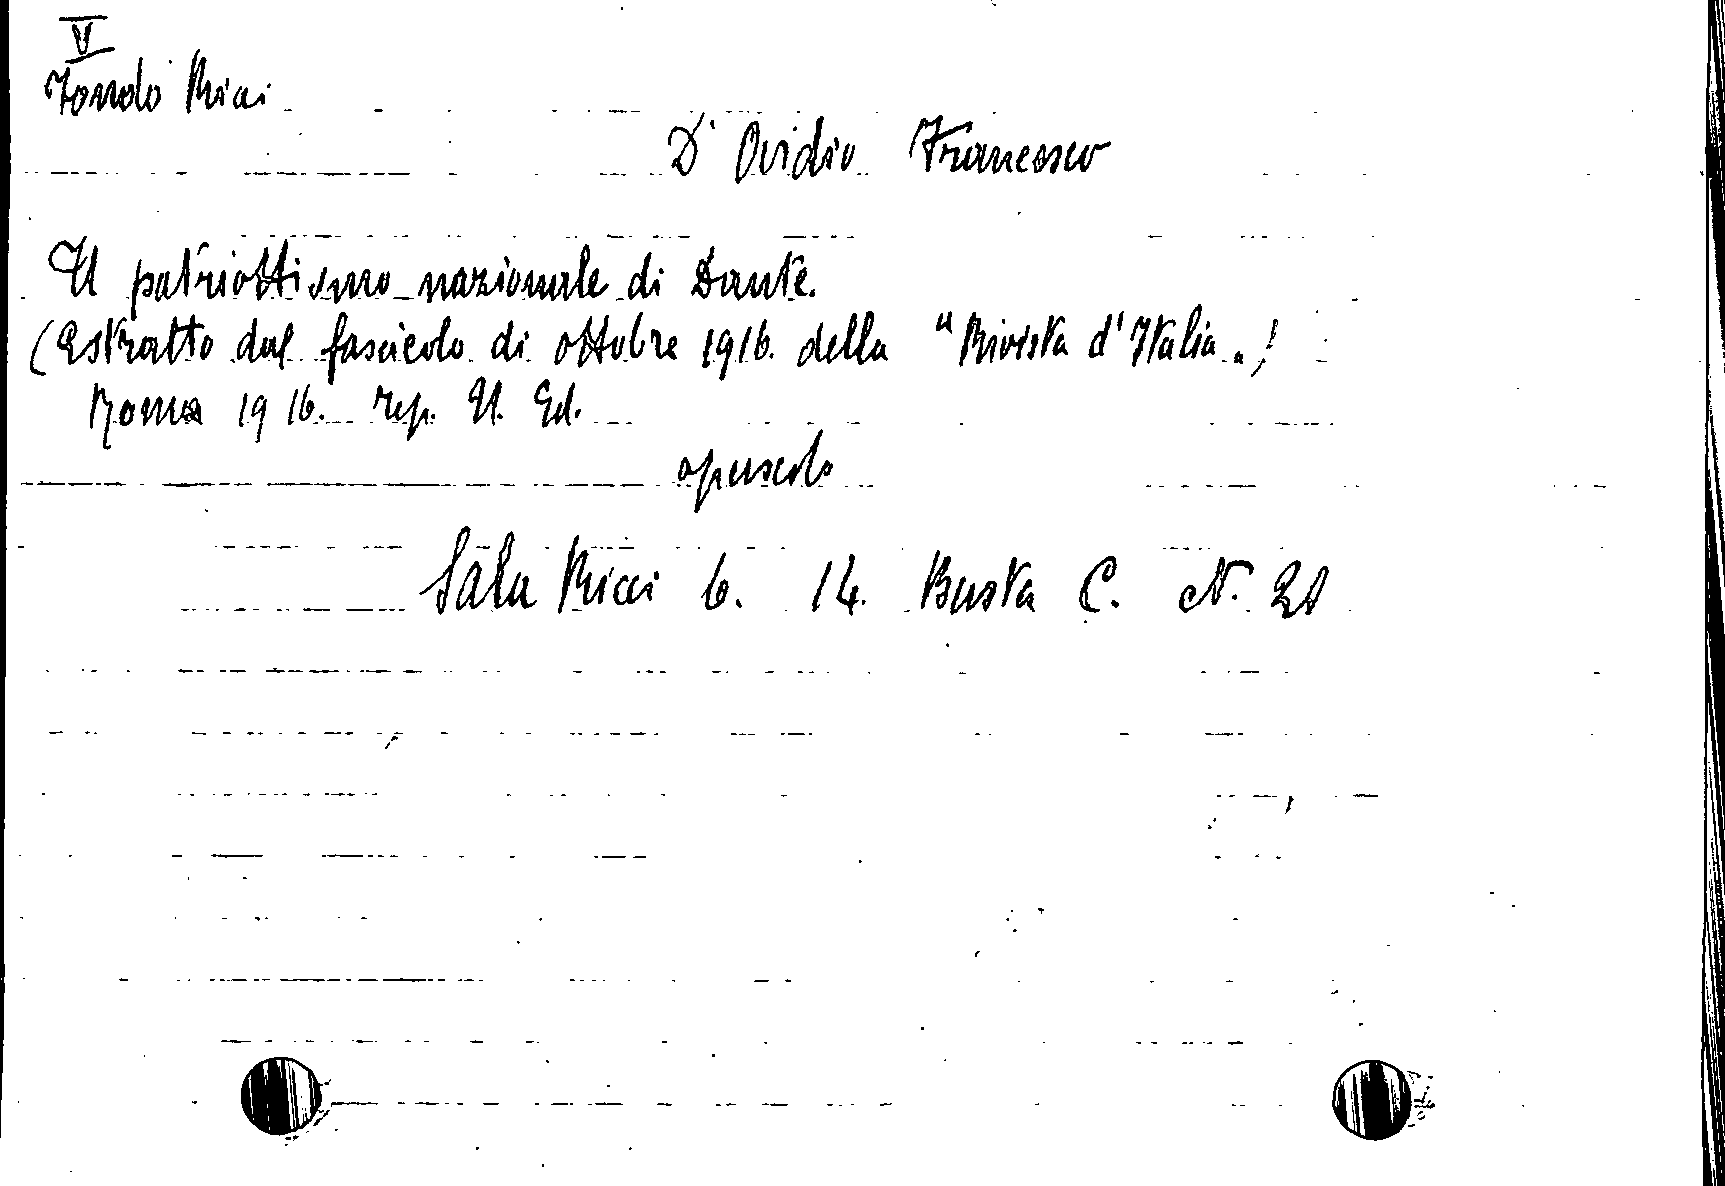 V
Fondo Ricci
D'Ovidio Francesco
Il patriottismo nazionale di Dante.
(Estratto dal fascicolo di ottobre 1916. della "Rivista d'Italia„)
Roma 1916. Ed.
opuscolo
Sala Ricci 6. 14. Busta C. N. 21